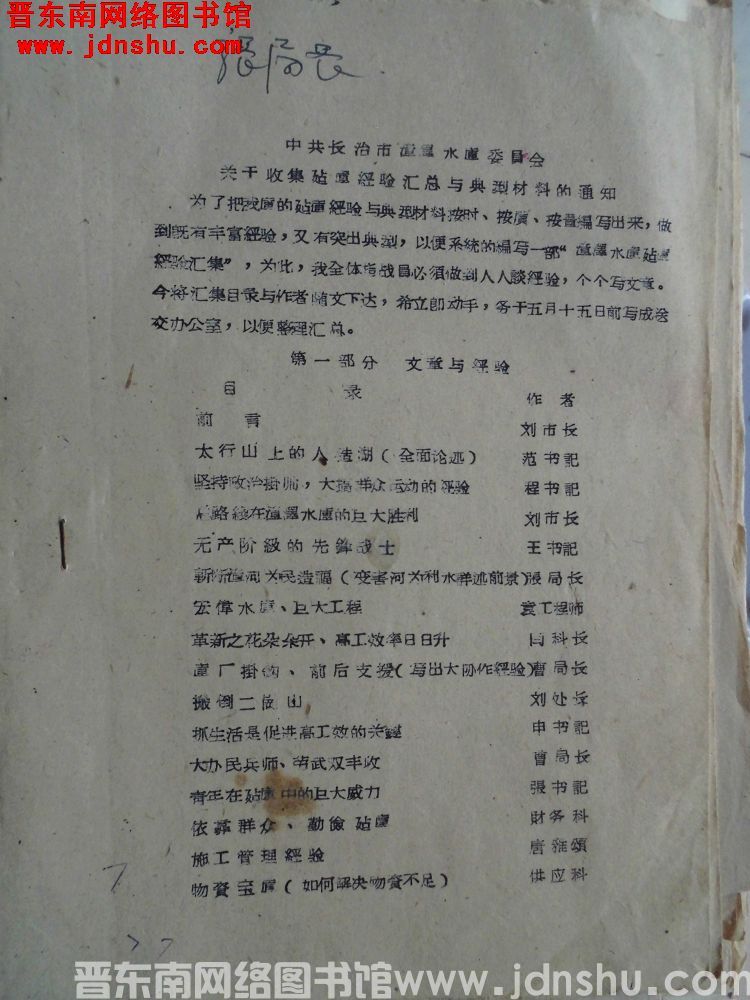 晋东南网络图书馆
www.jdnshu.com
張局长
中共长治市漳澤水庫委員会
关于收集站庫經验汇总与典型材料的通知
为了把我庫的站庫經验与典型材料按时、按质、按量編写出来，做
到既有丰富經验，又有突出典型，以便系統的編写一部“漳澤水庫站庫
經验汇集”，为此，我全体指战員必須做到人人談經验，个个写文章。
今将汇集目录与作者随文下达，希立即动手，务于五月十五日前写成送
交办公室，以便整理汇总。
第一部分 文章与經验
目 录 作者
前 言 刘市长
太行山上的人造湖（全面论述） 范书記
坚持政治掛帅，大搞群众运动的經验 程书記
总路綫在漳澤水庫的巨大胜利 刘市长
无产阶級的先鋒战士 王书記
斬断漳河为民造福（变害河为利水詳述前景）張局长
宏偉水庫、巨大工程 袁工程师
革新之花朵朵开、高工效率日日升 闫科长
庫厂掛鈎、前后支援（写出大协作經验）曹局长
搬倒二崗山 刘处长
抓生活是促进高工效的关鍵 申书記
大办民兵师、劳武双丰收 曹局长
青年在站庫中的巨大威力 張书記
依靠群众、勤儉站庫 財务科
施工管理經验 唐雅頌
物資宝庫（如何解决物資不足） 供应科
晋东南网络图书馆www.jdnshu.com